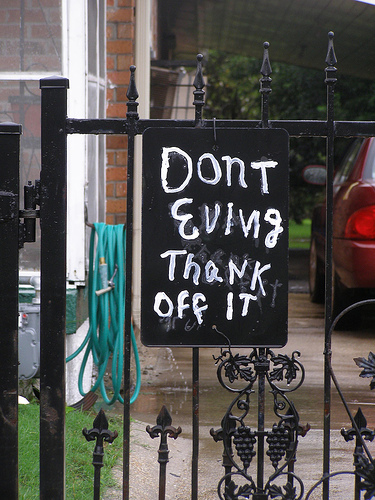 DONT
EVING
ThaNK
OFF IT